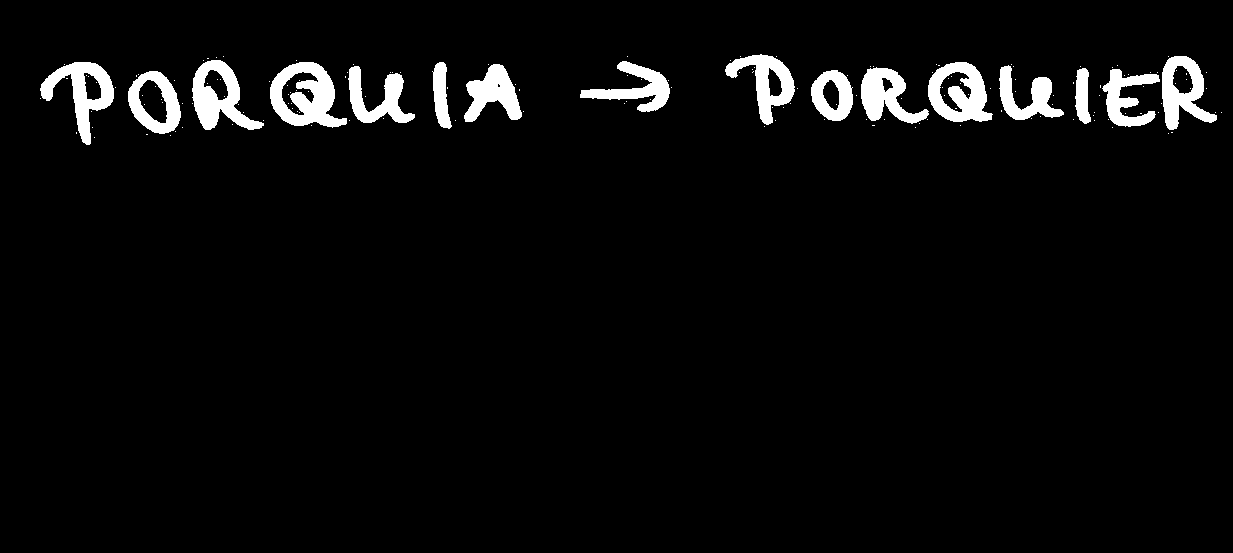 PORQUIA → PORQUIER